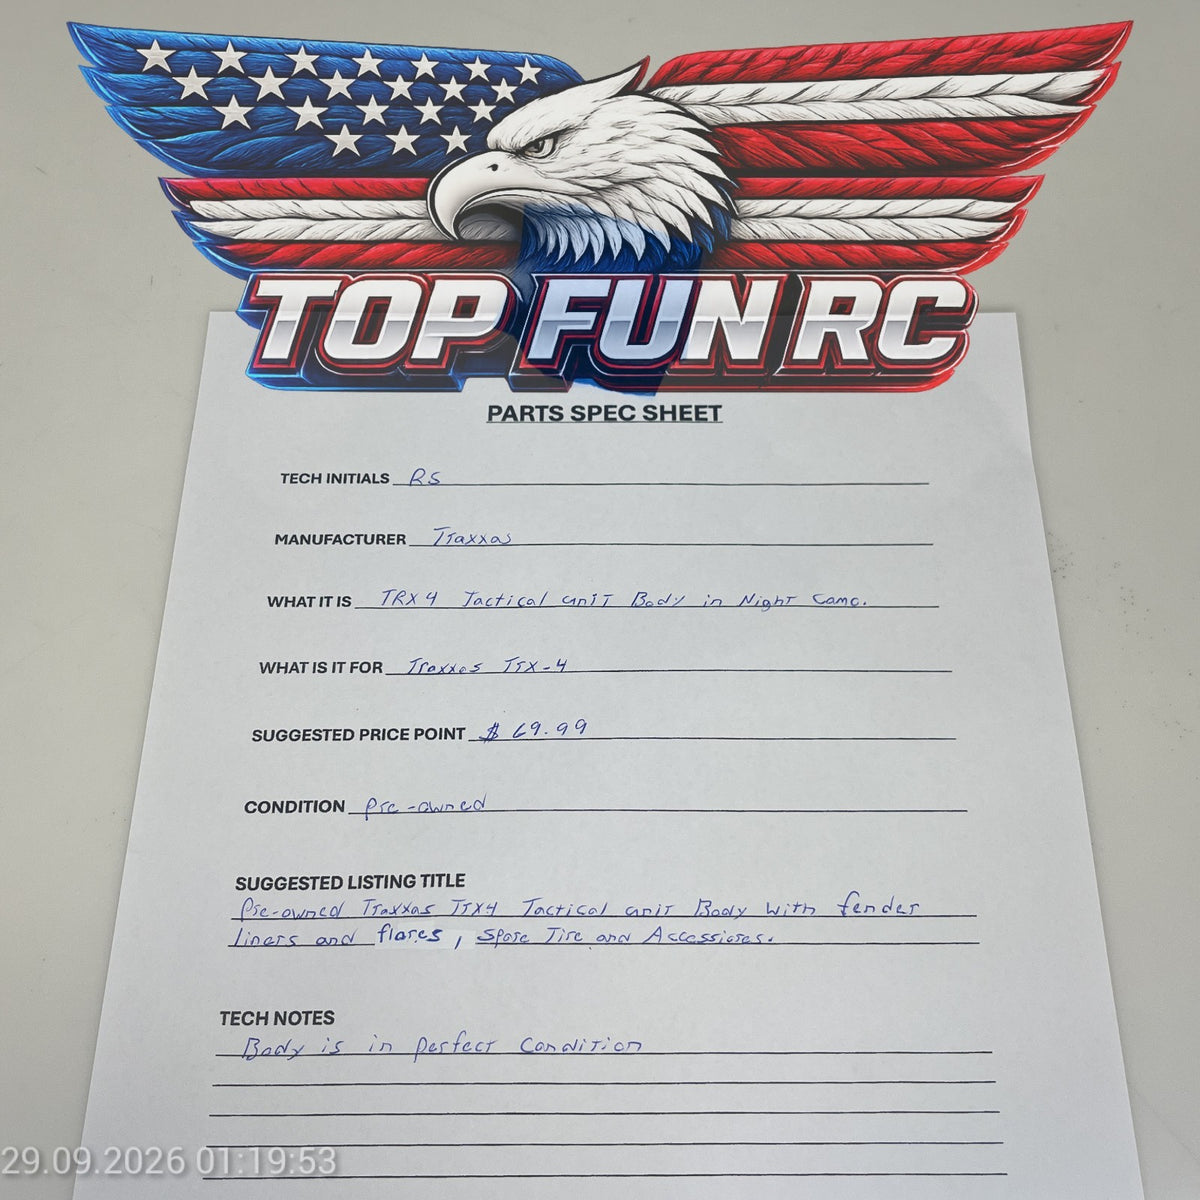 TOP FUN RC
PARTS SPEC SHEET
TECH INITIALS RS
MANUFACTURER Traxxas
WHAT IT IS TRX4 Tactical unit Body in Night Camo.
WHAT IS IT FOR Traxxas Trx-4
SUGGESTED PRICE POINT $ 69.99
CONDITION Pre-owned
SUGGESTED LISTING TITLE
Pre-owned Traxxas Trx4 Tactical unit Body with fender
liners and flares, Spare Tire and Accessiores.
TECH NOTES
Body is in perfect Condition
29.09.2026 01:19:53